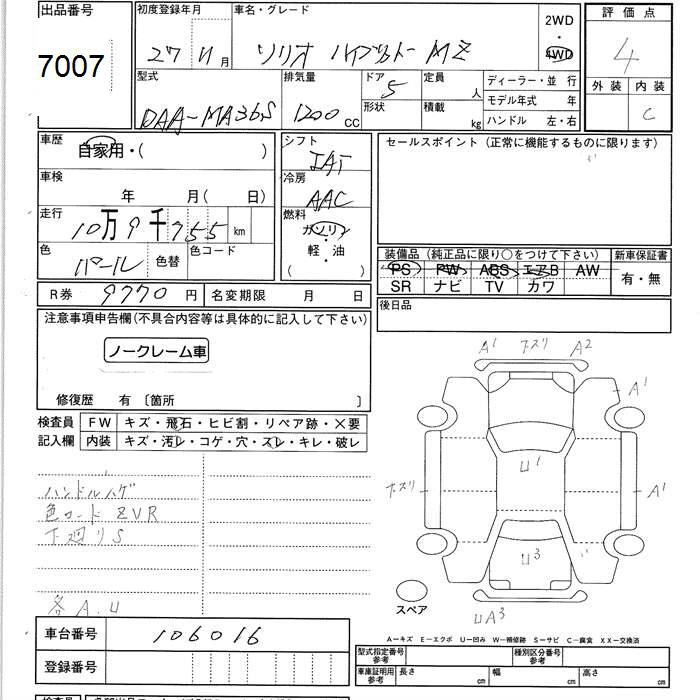 出品番号 初度登録年月 車名・グレード 2WD ・ 4WD 評価点
7007 27 11月 ソリオ ハイブリット MZ 4
型式 排気量 ドア 5 定員 人 ディーラー・並 行 外装 内装
DAA-MA36S 1200 CC 形状 積載 kg モデル年式 年 C
ハンドル 左・右
車歴 シフト セールスポイント (正常に機能するものに限ります)
自家用・( ) IAT
車検 冷房
年 月( 日) AAC
走行 燃料
10万9千755 km ガソリン
色 色替 色コード 軽・油
パール ( )
装備品 (純正品に限り○をつけて下さい) 新車保証書
PS PW ABS エアB AW 有・無
SR ナビ TV カワ
R券 9770 円 名変期限 月 日 後日品
注意事項申告欄(不具合内容等は具体的に記入して下さい)
ノークレーム車
修復歴 有 〔箇所 〕
検査員 FW キズ・飛石・ヒビ割・リペア跡・×要
記入欄 内装 キズ・汚レ・コゲ・穴・スレ・キレ・破レ
A1 スリ A2
A1
U1
スリ A1
U3
UA3
ハンドルハゲ
色コード ZVR
下廻りS
各A.U
スペア
A-キズ E-エクボ U-凹み W-補修跡 S-サビ C-腐食 XX-交換済
車台番号 106016
登録番号
型式指定番号 参考 種別区分番号 参考
車庫証明用 参考 長さ cm 幅 cm 高さ cm